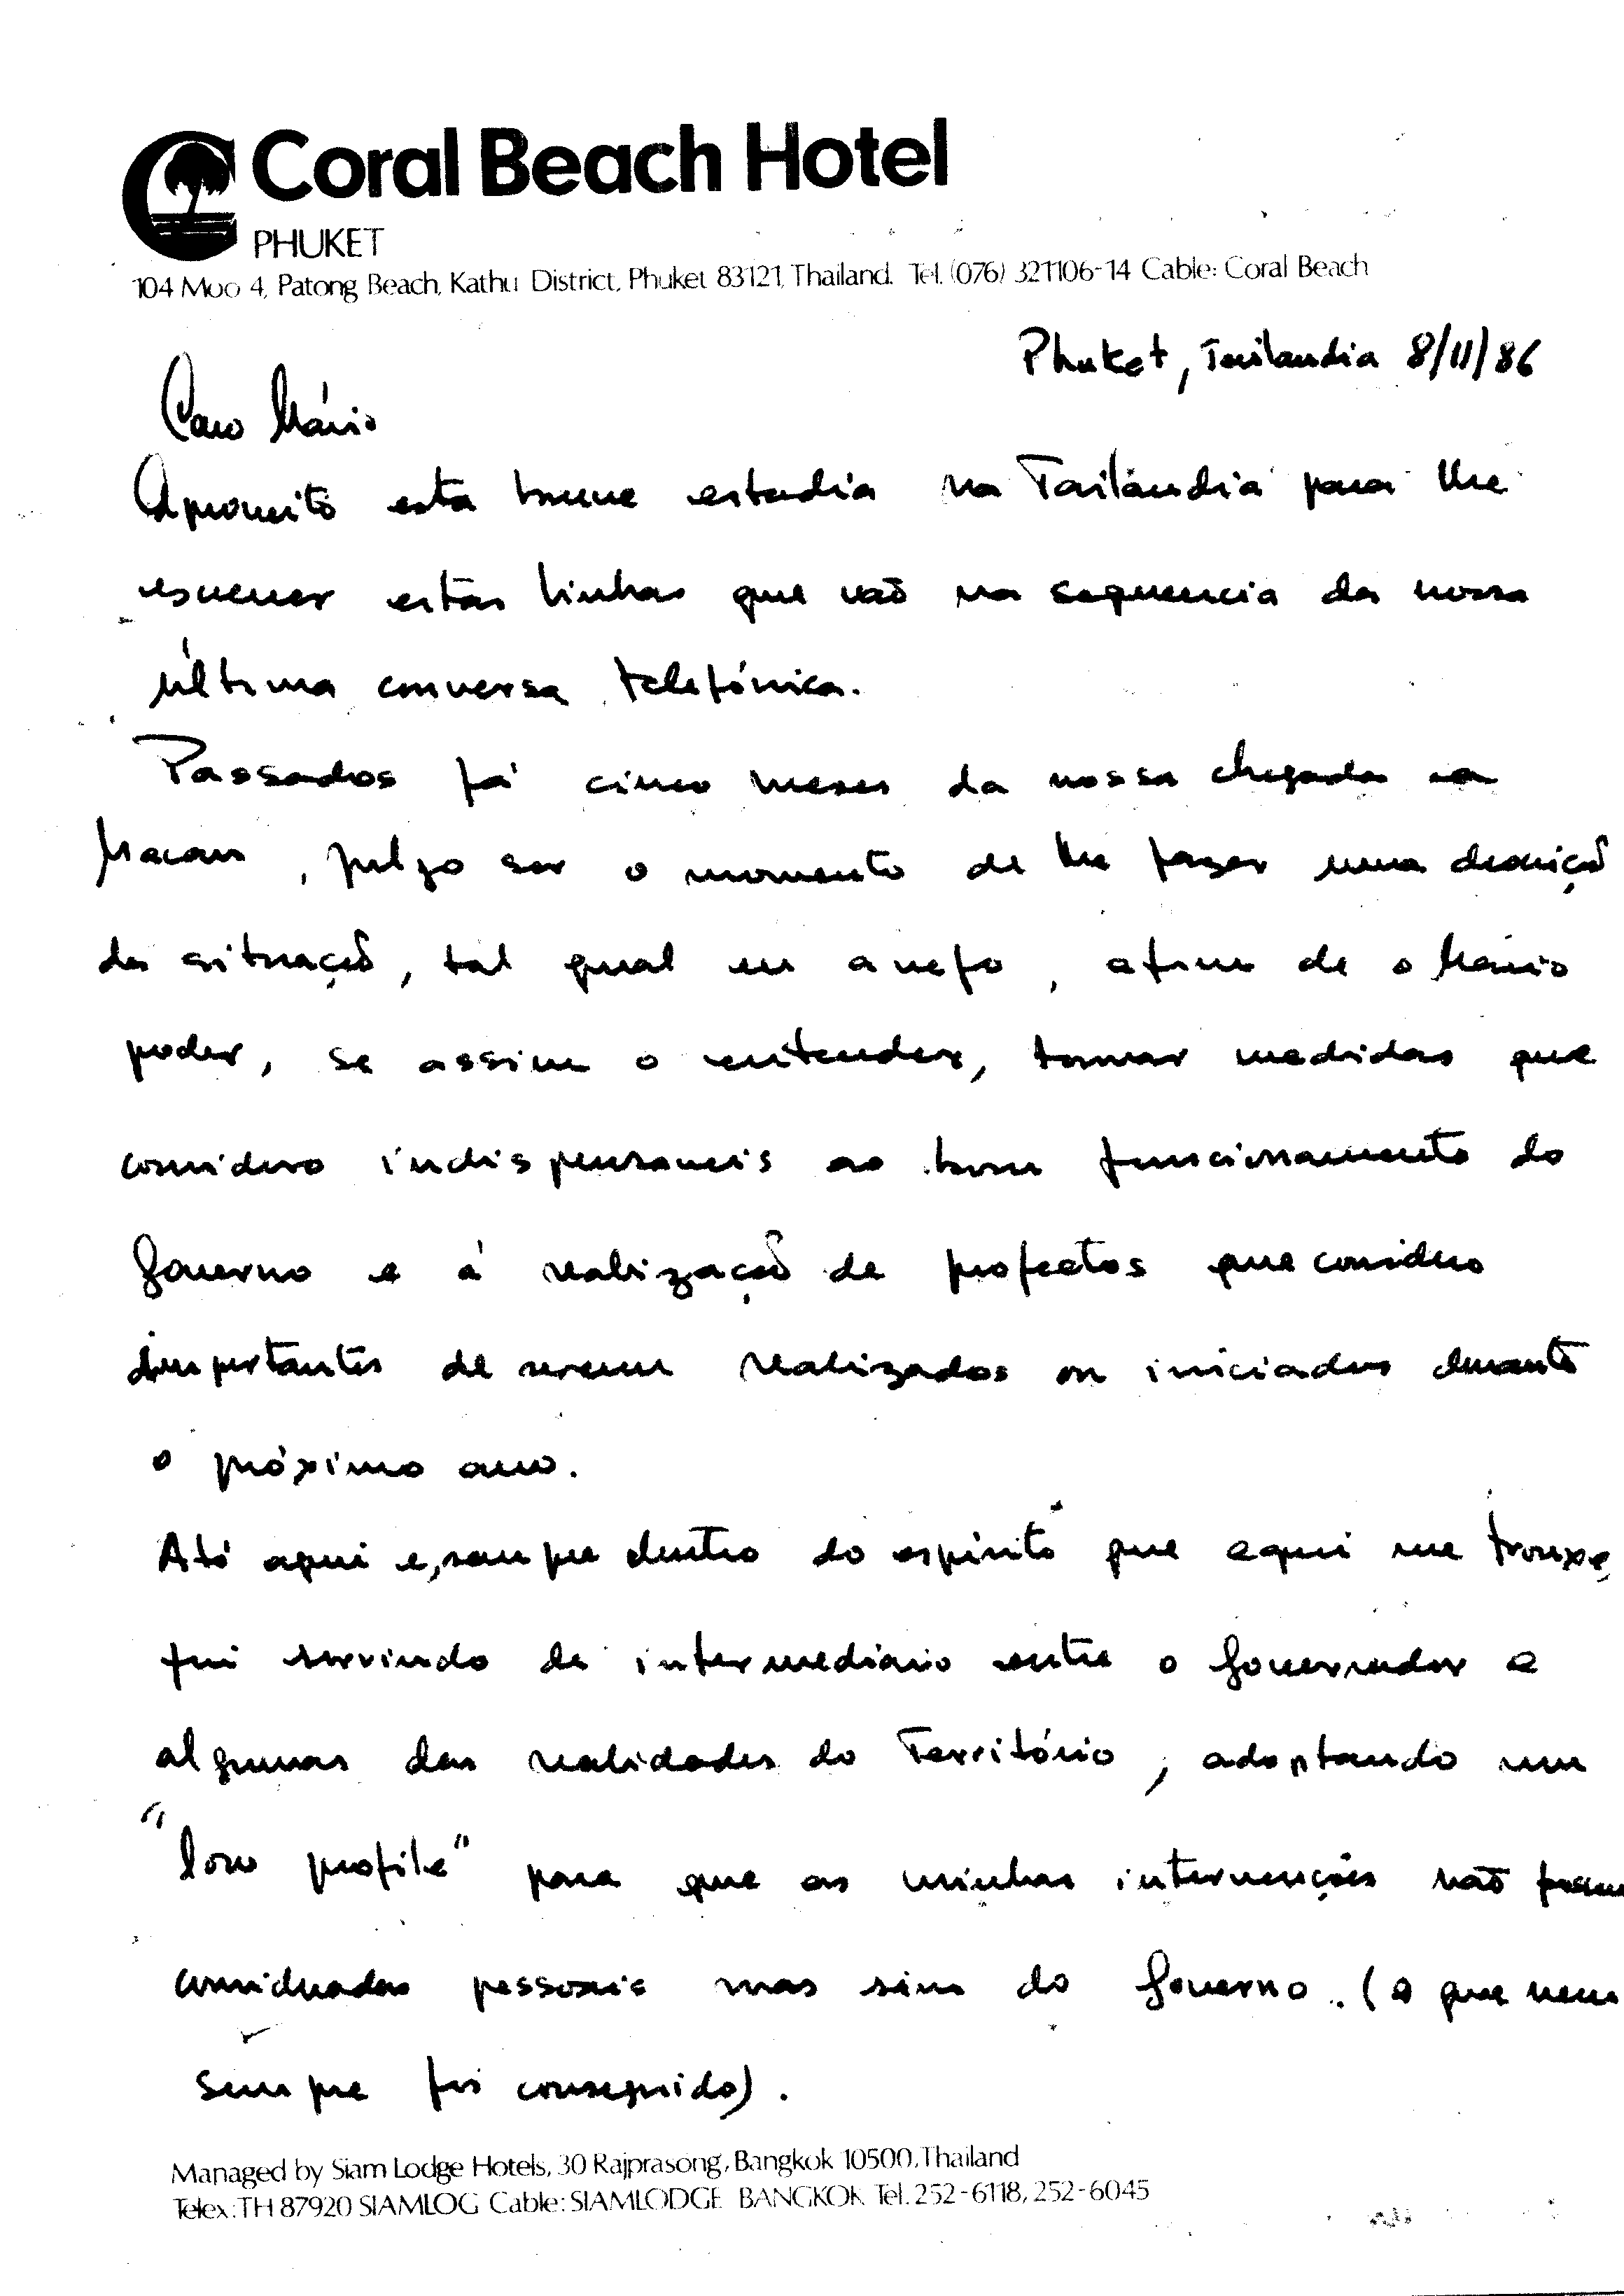 Coral Beach Hotel
PHUKET
104 Moo 4, Patong Beach, Kathu District, Phuket 83121 Thailand. Tel. (076) 321106-14 Cable: Coral Beach
Phuket, Tailandia 8/11/86
Caro Mário
Aproveito esta breve estadia na Tailândia para lhe
escrever estas linhas que vão na sequencia da nossa
última conversa telefónica.
Passados já cinco meses da nossa chegada a
Macau, julgo ser o momento de lhe fazer uma descrição
da situação, tal qual eu a vejo, afim de o Mário
poder, se assim o entender, tomar medidas que
considero indispensaveis ao bom funcionamento do
Governo e á realização de projectos que considero
importantes de serem realizados ou iniciados durante
o próximo ano.
Até aqui e, sempre dentro do espirito que aqui me trouxe,
fui servindo de intermediário entre o Governador e
algumas das realidades do Território, adoptando um
"low profile" para que as minhas intervenções não fossem
consideradas pessoais mas sim do Governo. (o que nem
sempre foi conseguido).
Managed by Siam Lodge Hotels, 30 Rajprasong, Bangkok 10500, Thailand
Telex: TH 87920 SIAMLOG Cable: SIAMLODGE BANGKOK Tel. 252-6118, 252-6045